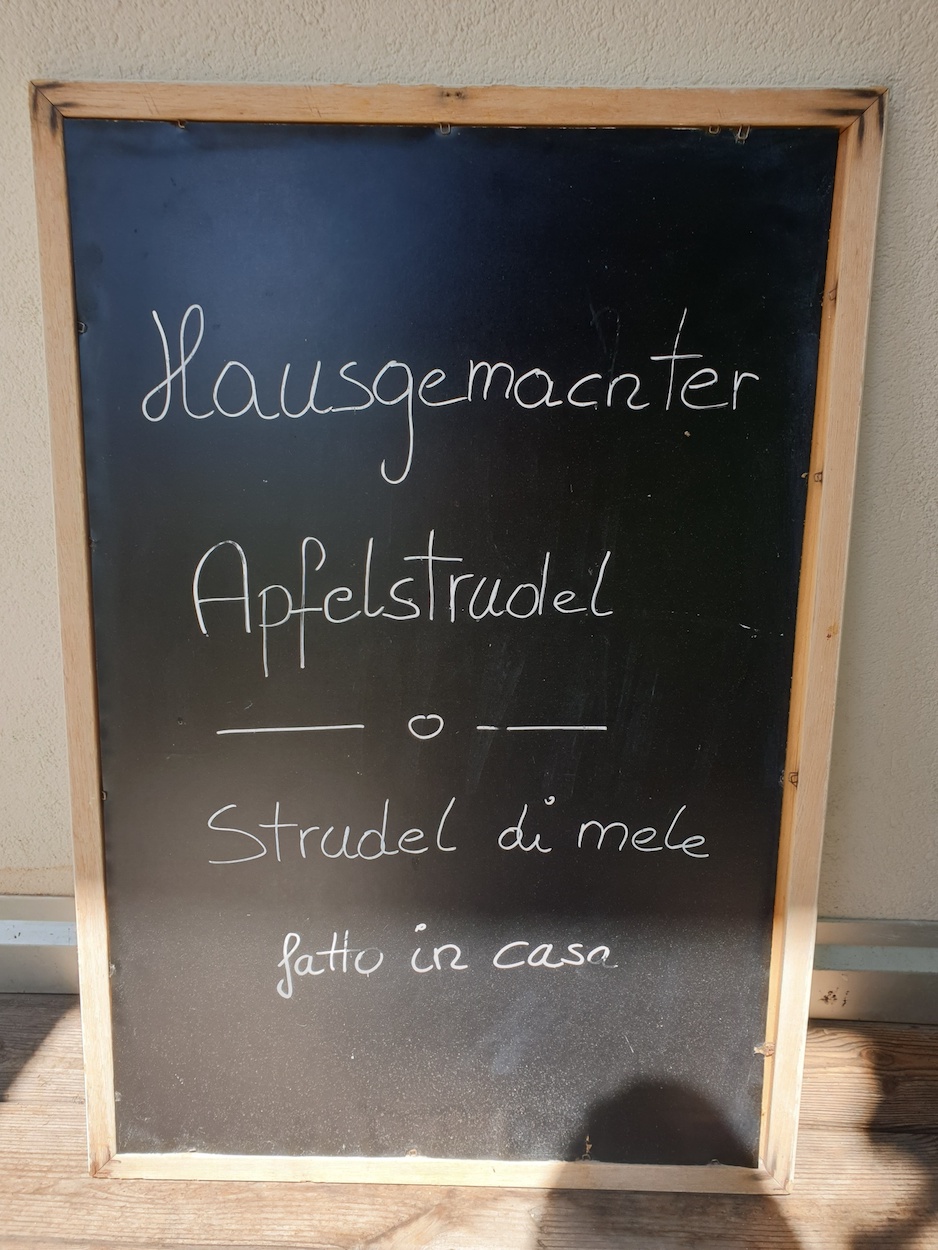 Hausgemachter
Apfelstrudel
— o —
Strudel di mele
fatto in casa